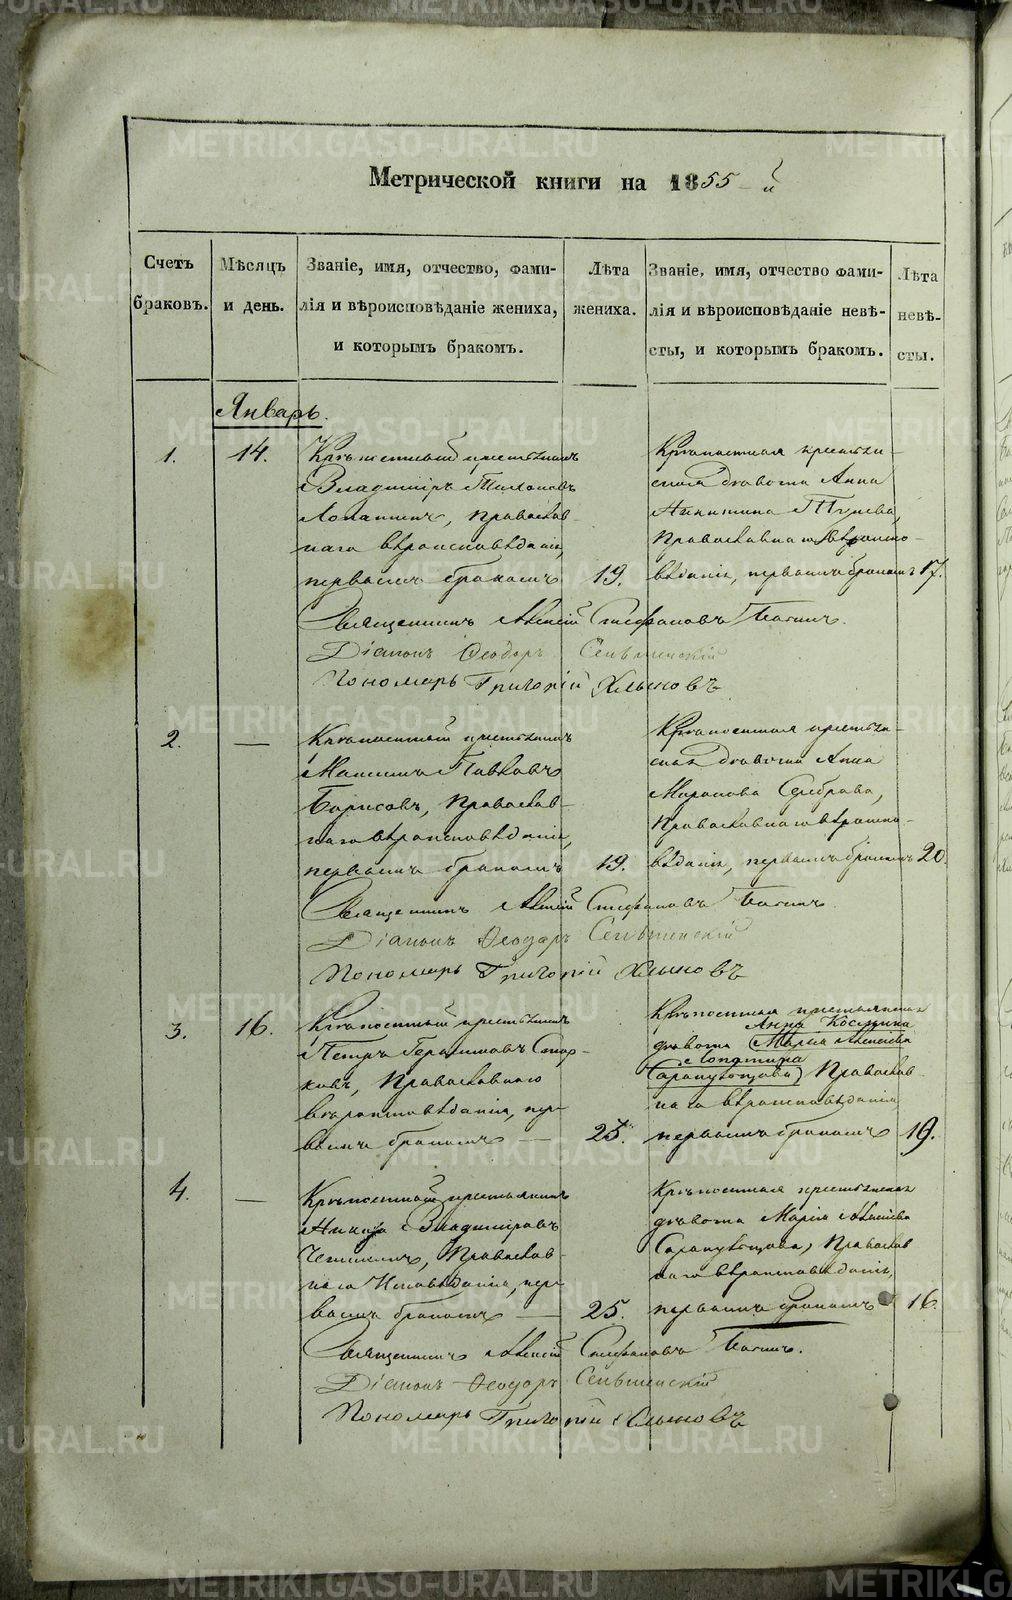 METRIKI.GASO-URAL.RU
Метрической книги на 1855-й
Счетъ браковъ.
Мѣсяцъ и день.
Званіе, имя, отчество, фами-
лія и вѣроисповѣданіе жениха,
и которымъ бракомъ.
Лѣта жениха.
Званіе, имя, отчество фами-
лія и вѣроисповѣданіе невѣ-
сты, и которымъ бракомъ.
Лѣта невѣ-
сты.
Январь.
1.
14.
Крѣпостный крестьянинъ
Владиміръ Тихоновъ
Лопатинъ, Православ-
наго вѣроисповѣданія,
первымъ бракомъ
19.
Крѣпостная крестьян-
ская дѣвица Анна
Никитина
Православнаго вѣроиспо-
вѣданія, первымъ бракомъ
17.
Священникъ Алексій Стефановъ
Діаконъ Ѳеодоръ
Пономарь Григорій Хлыновъ
2.
—
Крѣпостный крестьянинъ
Максимъ Павловъ
Борисовъ, Православ-
наго вѣроисповѣданія,
первымъ бракомъ
19.
Крѣпостная крестьян-
ская дѣвица Анна
Маркова
Православнаго вѣроиспо-
вѣданія, первымъ бракомъ
20.
Священникъ Алексій Стефановъ
Діаконъ Ѳеодоръ
Пономарь Григорій Хлыновъ
3.
16.
Крѣпостный крестьянинъ
Петръ Герасимовъ Стар-
ковъ, Православнаго
вѣроисповѣданія, пер-
вымъ бракомъ —
25.
Крѣпостная крестьянская
Анна Космина
дѣвица (Марія Алексіева
Лопатина
Сарапульцова) Православ-
наго вѣроисповѣданія
первымъ бракомъ
19.
4.
—
Крѣпостный крестьянинъ
Никита Владиміровъ
Православ-
наго Исповѣданія, пер-
вымъ бракомъ —
25.
Крѣпостная крестьянская
дѣвица Марія Алексіева
Сарапульцова, Православ
наго вѣроисповѣданія,
первымъ бракомъ
16.
Священникъ Алексій Стефановъ
Діаконъ Ѳеодоръ
Пономарь Григорій Хлыновъ